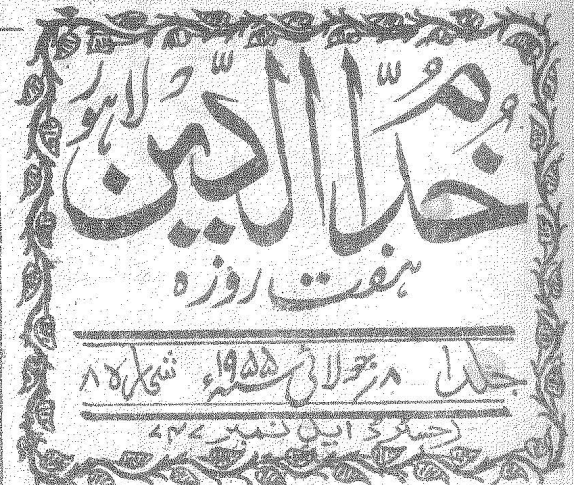 خدّامُ الدّین لاہور
ہفت روزہ
جلد ۱ ۸ جولائی سنہ ۱۹۵۵ء شمارہ ۸
رجسٹرڈ ایل نمبر ۷۴۷